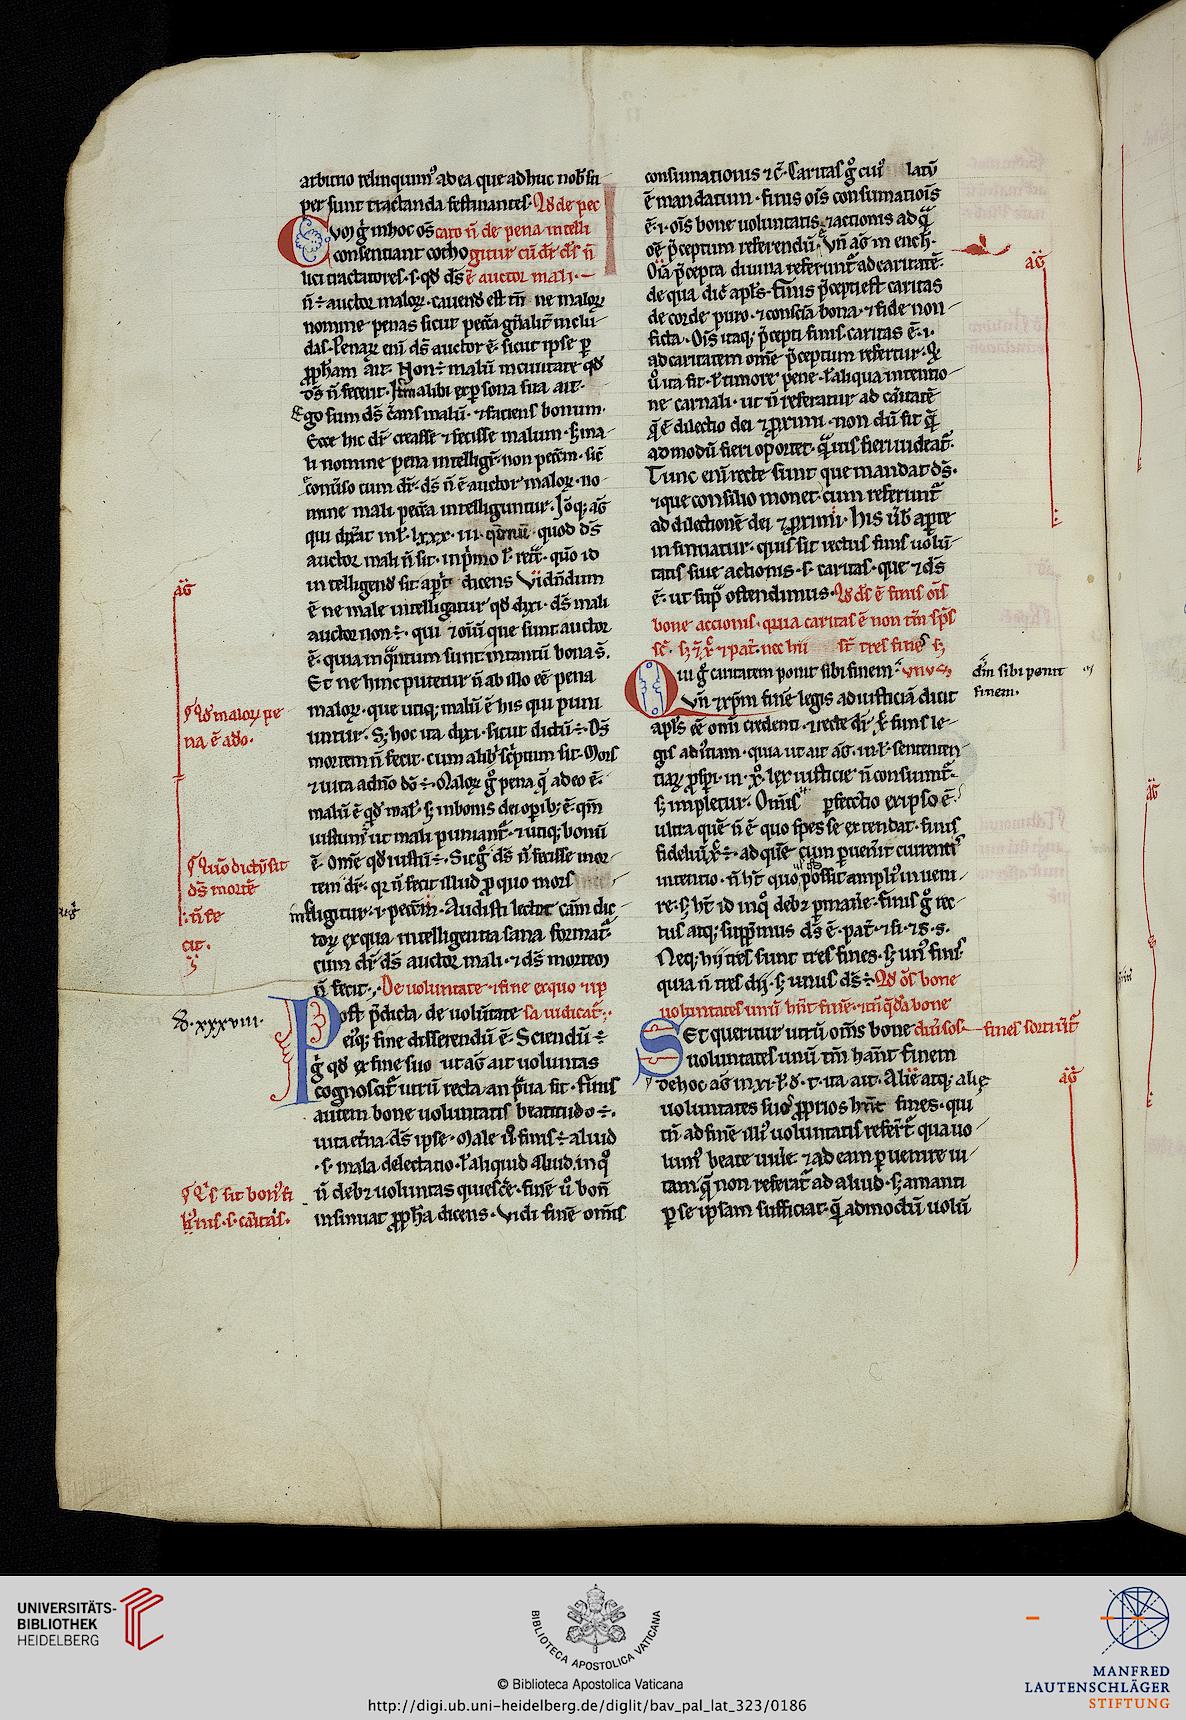 arbitrio relinquim᷒ ad ea que ad huc nob̄ su
per sunt tractanda festinantes. Qd de pec
Cvm g̊ in hoc om̄s cato n̄ de pena intelli
consentiant catho gitur cū dr̄ ds̄ n̄
lici tractatores .s. qd ds̄ ē auctor mali.
n̄ ÷ auctor maloꝝ. cauend est tn̄ ne maloꝝ
nomine penas sicut pecc̄a gn̄alit̄ inclu
das. Penaꝝ eni ds̄ auctor ē. sicut ipse ꝑ
ꝓph̄am ait. Non ÷ malū in ciuitate qd
ds̄ n̄ fecerit. Itē alibi ex ꝑsona sua ait.
Ego sum ds̄ c̄ans malū. ⁊ faciens bonum.
Ecce hic dr̄ creasse ⁊ fecisse malum. sꝫ ma
li nomine pena intelligit̄. non pecc̄m. sic̄
ecōuerso cum dr̄. ds̄ n̄ ē auctor maloꝝ. no
mine mali pecc̄a intelliguntur. Ioq; aḡ
qui dixerat in l. lxxx. iii. quod ds̄
auctor mali n̄ sit. in p̄mo l. ret̄. quō id
intelligend sit aꝑit dicens Vidn̄dum
ē ne male intelligatur qd dixi. ds̄ mali
auctor non ÷. qui ⁊ oiū que sunt auctor
ē. quia in qᷓntum sunt in tantū bona s̄.
Et ne hinc putetur n̄ ab illo eē pena
maloꝝ. que utiq; malū ē his qui puni
untur. Sꝫ hoc ita dixi. sicut dictū ÷. Ds̄
mortem n̄ fecit. cum alibi sc̄ptum sit. Mors
⁊ uita a dn̄o do ÷. Maloꝝ g̊ pena q̄ a deo ē.
malū ē qd mal. sꝫ in bonis dei oꝑib; ē. qm̄
iustum ut mali puniant̄. ⁊ utiq; bonū
ē om̄e qd iustū ÷. Sic g̊ ds̄ n̄ fecisse mor
tem dr̄. qꝛ n̄ fecit illud ꝓ quo mors
infligitur .i. pecc̄m. Audisti lector cām dic
toꝝ ex qua intelligentia sana format̄.
cum dr̄ ds̄ auctor mali. ⁊ ds̄ mortem
n̄ fecit. De voluntate ⁊ fine ex quo ⁊ ip
Post p̄dicta. de volūtate sa iudicat̄.
eiusq; fine disserendū ē. Sciendū ÷
g̊ qd ex fine suo ut aḡ ait uoluntas
cognoscit̄ utrū recta an p̄ua sit. Finis
autem bone uoluntatis beatitudo ÷.
uita et̄na. ds̄ ipse. Male ů finis ÷ aliud
.s. mala delectatio. ł aliquid aliud. in q̊
n̄ deb; uoluntas quiesc̄e. finē ů bon̄
insinuat ꝓph̄a dicens. Vidi finē om̄is
consumationis ⁊ c̄. Caritas g̊ cui latū
ē mandatum. finis ois̄ consumatiois̄
ē .i. ois̄ bone uoluntatis ⁊ actionis ad qᷓ
oē p̄ceptum referendū. Vn̄ aḡ in ench̄.
Oia p̄cepta diuina referunt̄ ad caritatē.
de qua dic̄ apl̄s. finis p̄cepti est caritas
de corde puro. ⁊ conscia bona. ⁊ fide non
ficta. Ois̄ itaq; p̄cepti finis caritas ē .i.
ad caritatem om̄e p̄ceptum refertur. Qd
ů ita fit. ł timore pene. ł aliqua intentio
ne carnali. ut n̄ referatur ad caritatē
qᷓ ē dilectio dei ⁊ ꝓximi. non dū fit q̄
ad modū fieri oportet. qᷓuis fieri uideat̄.
Tunc eni recte fiunt que mandat ds̄.
⁊ que consilio monet. cum referunt̄
ad dilectionē dei ⁊ ꝓximi. his ūb aperte
insinuatur. quis sit rectus finis uolū
tatis siue actionis .s. caritas. que ⁊ ds̄
ē. ut supᷓ ostendimus. Qd ds̄ ē finis ois̄
bone accionis. quia caritas ē non tm̄ sp̄s
sc̄. sꝫ ⁊ x̄ ⁊ pat̄. nec hii st̄ tres fines sꝫ
Qui g̊ caritatem ponit sibi finem. vnvs
Vn̄ ⁊ xp̄m finē legis ad iusticiā dicit
apl̄s eē omi credenti. ⁊ recte dr̄ x̄ finis le
gis ad iustitiam. quia ut ait aḡ. in l. sententen
tiaꝝ ꝓsꝑi. in x̊. lex iusticie n̄ consumit̄.
sꝫ impletur. Omīs ꝑfectio ex ipso ē.
ultra quē n̄ ē quo spes se extendat. Finis
fideliū x̄ ÷. ad quē cum ꝑuen̄it currentis
intentio. n̄ h̄t quo possit ampli᷒ inueni
re. sꝫ h̄t id in q̊ deb; ꝑman̄e. finis g̊ rec
tus atq; supp̄mus ds̄ ē. pat̄. ⁊ fi. ⁊ s. s.
Neq; hii tres sunt tres fines. sꝫ un᷒ finis
quia n̄ tres dii. sꝫ unus ds̄ ÷. Qd oēs bone
voluntates unū hn̄t finē. ⁊ tn̄ q̄dā bone
Set queritur utrū om̄s bone diu̇sos fines sortiūt̄
uoluntates unū tm̄ han̄t finem
de hoc aḡ in xi. l. d. t. ita ait. Alie atq; alie
uoluntates suos ꝓprios hn̄t fines. qui
tn̄ ad finē illi᷒ uoluntatis refer̄t̄ qua uo
lum᷒ beate uiu̇e ⁊ ad eam ꝑuenire ui
tam. q̄ non referat̄ ad aliud. sꝫ amanti
ꝑ se ipsam sufficiat. qᷓ admodū uolū
aḡ
¶ Qd maloꝝ pe
na ē a do.
¶ Quō dictū sit
ds̄ mortē
n̄ fe
cit.
d. xxxviii.
¶ Qs̄ sit bon᷒ fi
nis .s. caritas.
aḡ
dm̄ sibi ponit
finem.
aḡ
UNIVERSITÄTS-
BIBLIOTHEK
HEIDELBERG
BIBLIOTECA APOSTOLICA VATICANA
© Biblioteca Apostolica Vaticana
http://digi.ub.uni-heidelberg.de/diglit/bav_pal_lat_323/0186
MANFRED
LAUTENSCHLÄGER
STIFTUNG